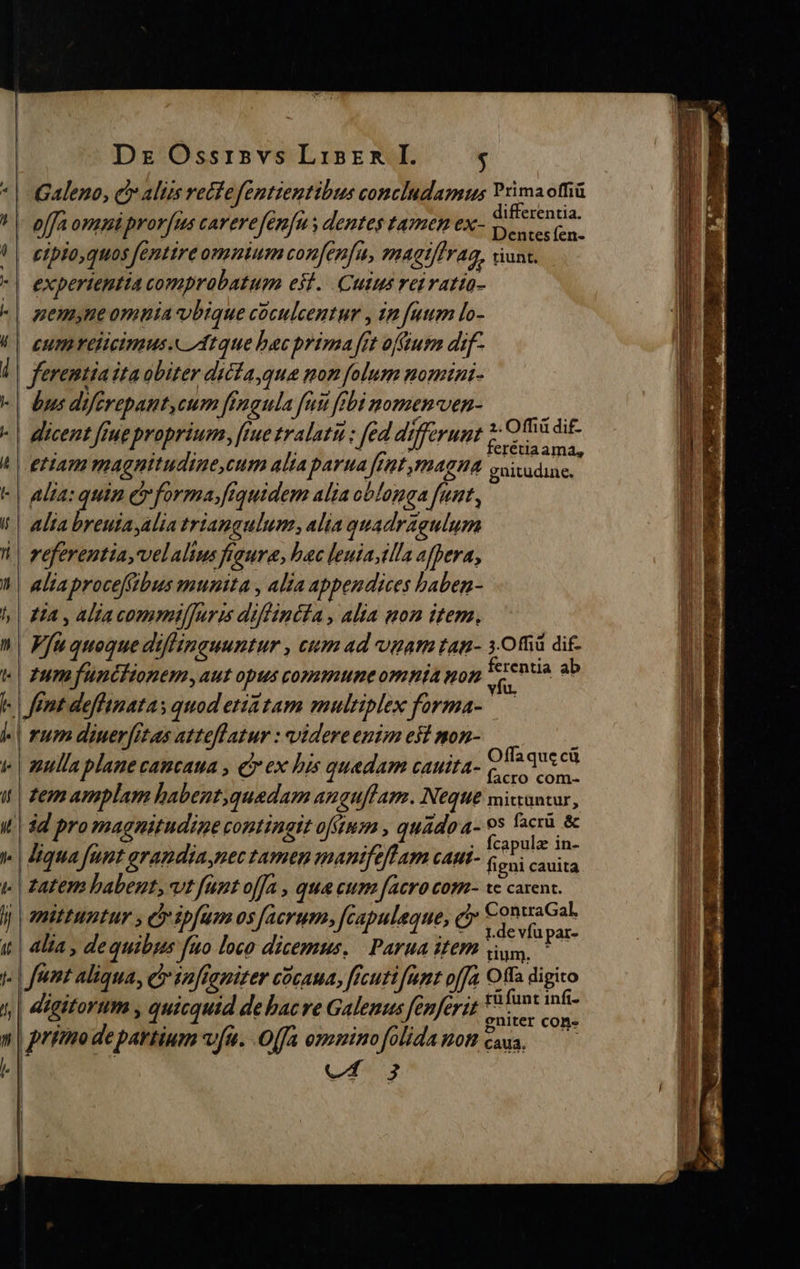 DE OSSIBVS LIBER I. 5
Galeno, & aliis rectè sentientibus concludamus
ossa omni prorsus carere sensu; dentes tamen ex-
cipio, quos sentire omnium consensu, magistraq́,
experientia comprobatum est. Cuius rei ratio-
nem, ne omnia vbique cōculcentur, in suum lo-
cum reiicimus. Atque hæc prima sit ossium dif-
ferentia ita obiter dicta, quæ non solum nomini-
bus discrepant, cum singula suū sibi nomen ven-
dicent siue proprium, siue tralatū: sed differunt
etiam magnitudine, cum alia parua sint, magna
alia: quin & forma, siquidem alia oblonga sunt,
alia breuia, alia triangulum, alia quadrāgulum
referentia, vel alius figuræ, hæc leuia, illa aspera,
alia processibus munita, alia appendices haben-
tia, alia commissuris distincta, alia non item.
Vsu quoque distinguuntur, cum ad vnam tan-
tum functionem, aut opus commune omnia non
sint destinata; quod etiā tam multiplex forma-
rum diuersitas attestatur: videre enim est non-
nulla plane cancaua, & ex his quædam cauita-
tem amplam habent, quædam angustam. Neque
id pro magnitudine contingit ossium, quādo a-
liqua sunt grandia, nec tamen manifestam caui-
tatem habent, vt sunt ossa, quæ cum sacro com-
mittuntur, & ipsum os sacrum, scapulæque, &
alia, de quibus suo loco dicemus. Parua item
sunt aliqua, & insigniter cōcaua, sicuti sunt ossa
digitorum, quicquid de hac re Galenus senserit
primo de partium vsu. Ossa omnino solida non
A 3
Prima ossiū
differentia.
Dentes sen-
tiunt.
2. Ossiū dif-
ferētia a ma,
gnitudine.
3. Ossiū dif-
ferentia ab
vsu.
Ossa quæ cū
sacro com-
mittuntur,
os sacrū &
scapulæ in-
signi cauita
te carent.
Contra Gal.
1. de vsu par-
tium.
Ossa digito
rū sunt insi-
gniter con-
caua.